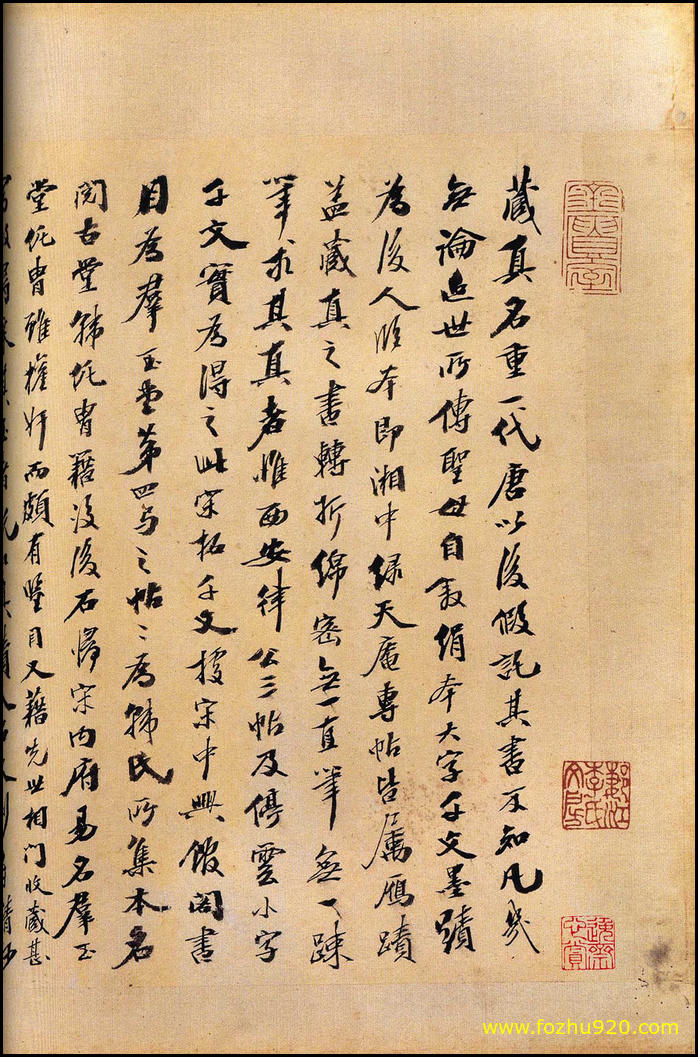 藏真名重一代唐以後假託其書不知凡幾
無論近世所傳聖母自敘絹本大字千文墨蹟
為後人臨本即湘中綠天庵專帖皆屬雁蹟
益藏真之書轉折綿密無一直筆無一疎
筆求其真者惟西安律公三帖及停雲小字
千文實為得之此宋拓千文據宋中興館閣書
目為羣玉堂第四与之帖〻為韩氏所集本名
閱古堂韩侂胄籍沒後石歸宋內府易名羣玉
堂侂胄雖權奸而頗有鑒目又藉先世相門收藏甚
鄞江李氏
www.fozhu920.com